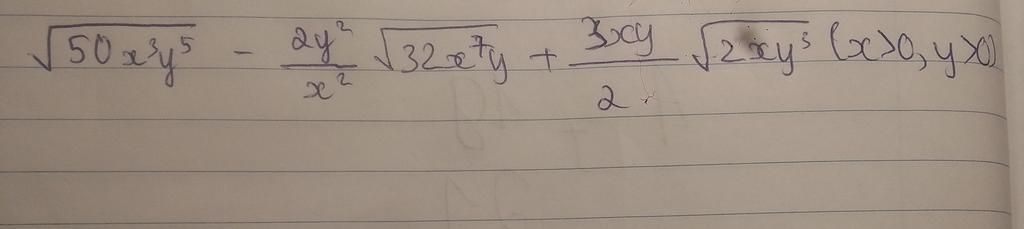 √(50x³y⁵) - 2y²/x² √(32x⁷y) + 3xy/2 √(2xy³) (x>0, y>0)